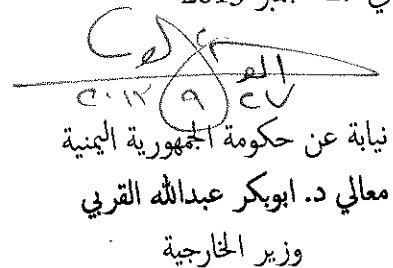 2013
٢٧ ٩ ٢٠١٣
نيابة عن حكومة الجمهورية اليمنية
معالي د. ابوبكر عبدالله القربي
وزير الخارجية